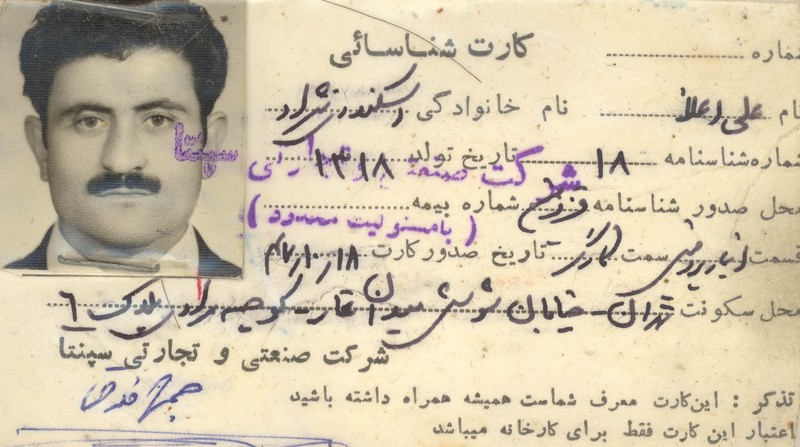 کارت شناسائی
شماره
نام علی اعلا نام خانوادگی اسکندری نژاد
شماره شناسنامه ۱۸ تاریخ تولد ۱۳۱۸
سپنتا
شرکت صنعتی و تجارتی
محل صدور شناسنامه شماره بیمه
(با مسئولیت محدود)
قسمت سمت کارگر تاریخ صدور کارت ۴۷/۱۰/۱۸
محل سکونت تهران - خیابان شوش میدان غار - کوچه پلاک ۶
شرکت صنعتی و تجارتی سپنتا
تذکر : این کارت معرف شماست همیشه همراه داشته باشید
اعتبار این کارت فقط برای کارخانه میباشد